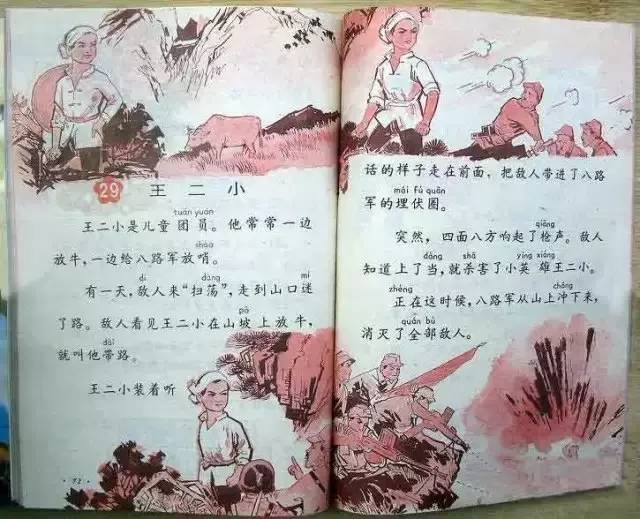 29 王二小
tuán yuán
王二小是儿童团员。他常常一边
shào
放牛,一边给八路军放哨。
dí dàng mí
有一天,敌人来“扫荡”,走到山口迷
pō
了路。敌人看见王二小在山坡上放牛,
dài
就叫他带路。
王二小装着听
·72·
话的样子走在前面,把敌人带进了八路
mái fú quān
军的埋伏圈。
qiāng
突然,四面八方响起了枪声。敌人
dàng shā yīng xióng
知道上了当,就杀害了小英雄王二小。
zhèng chōng
正在这时候,八路军从山上冲下来,
quán bù
消灭了全部敌人。